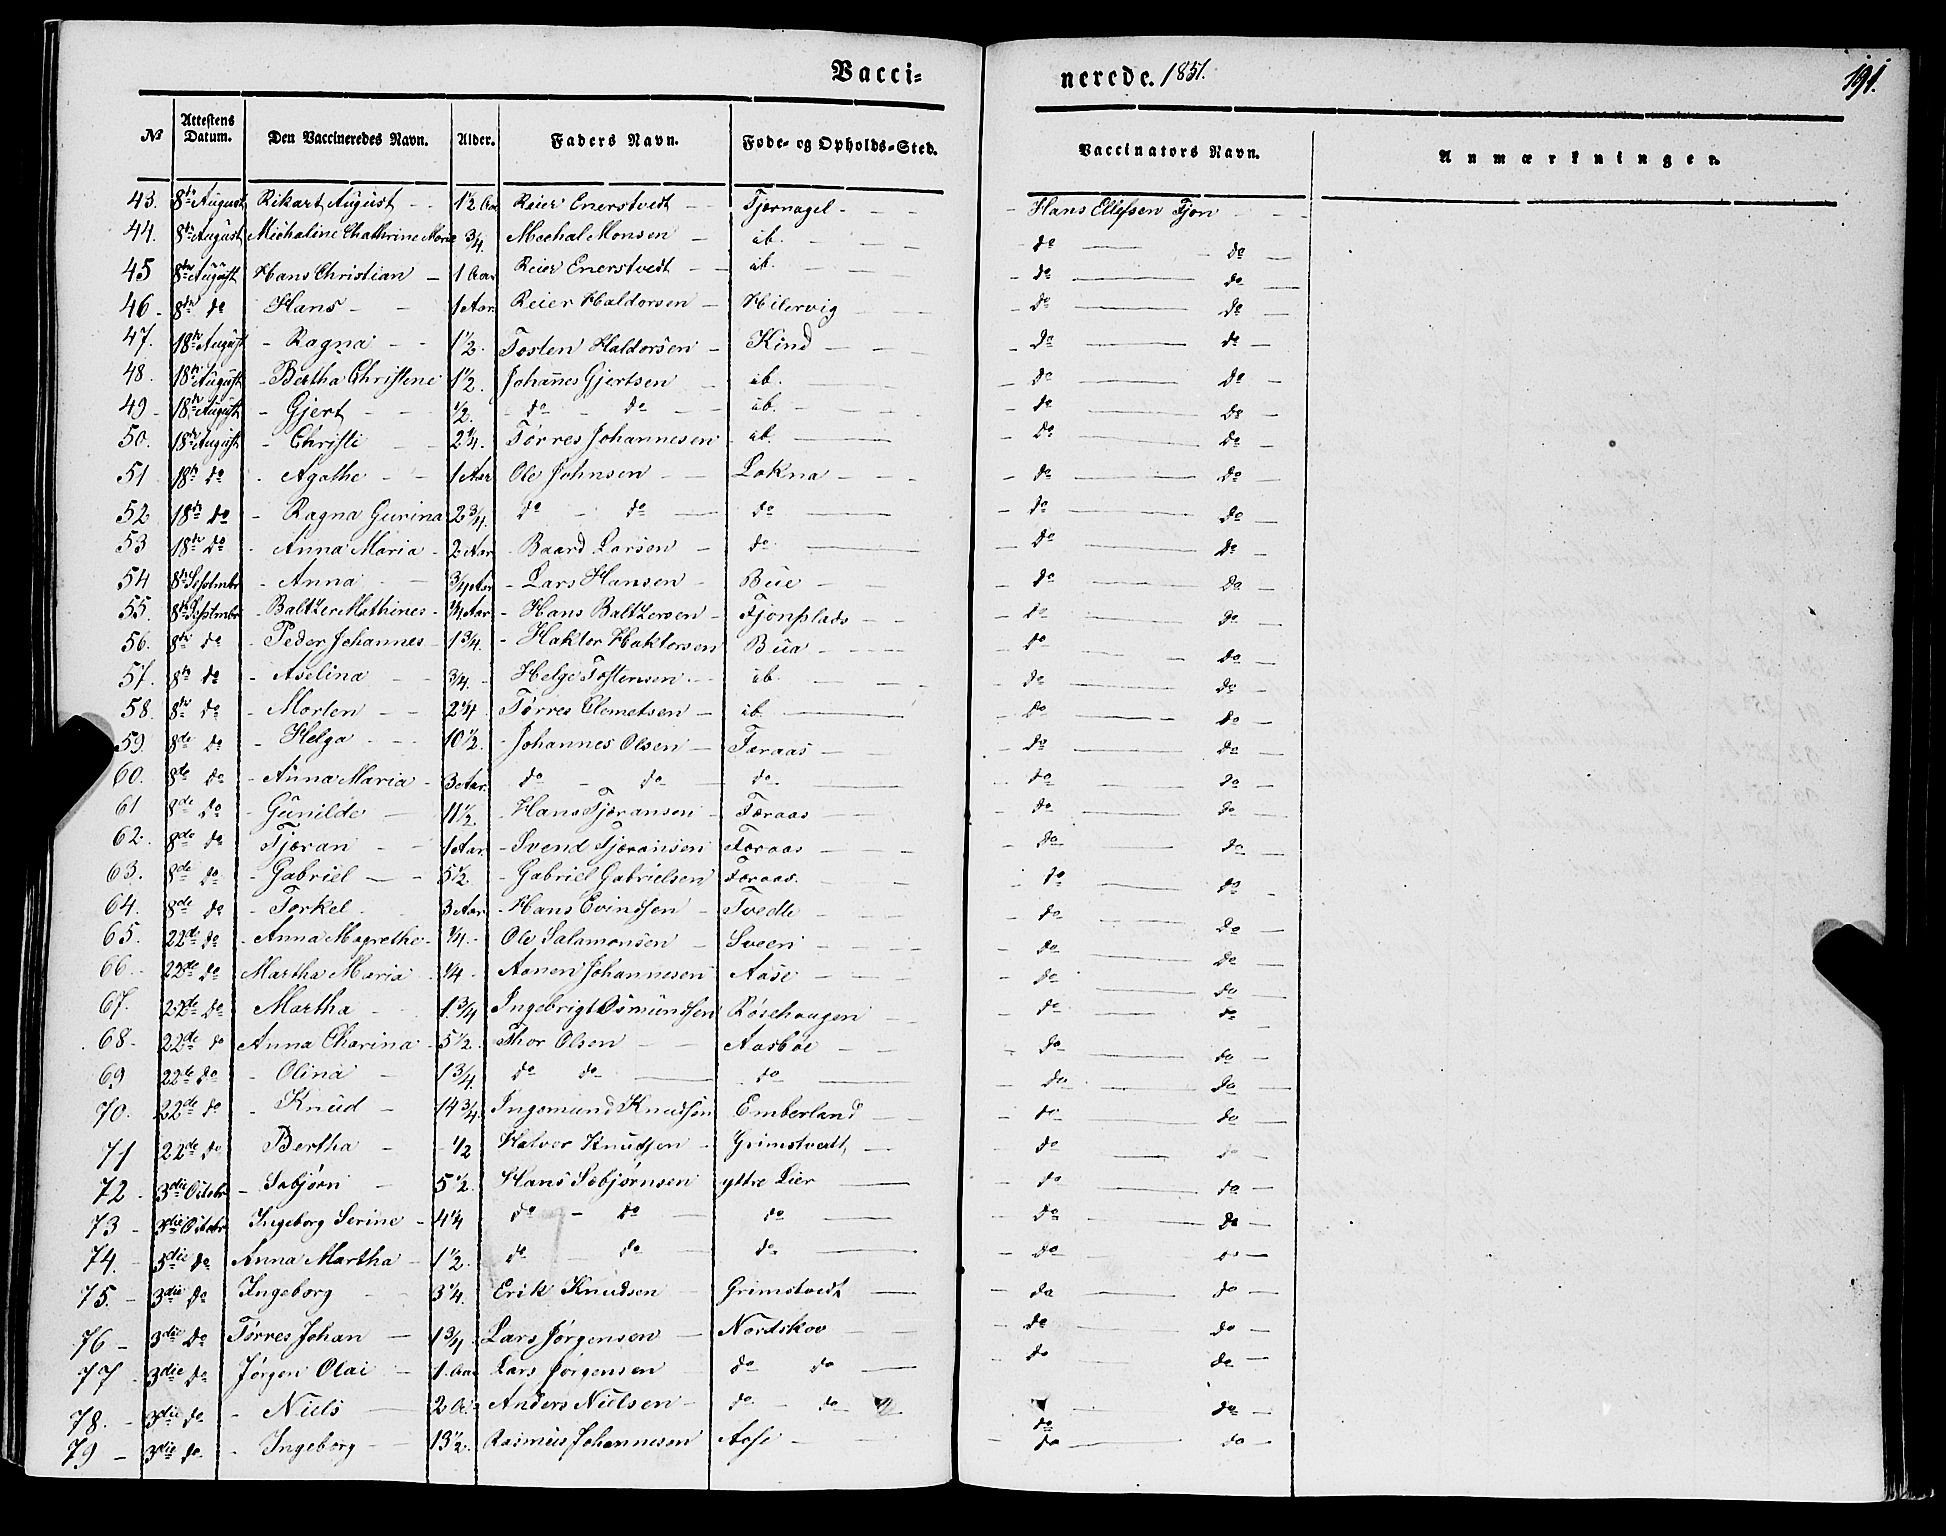 Vacci= nerede. 1851. 191.
No Attestens Datum. Den Vaccineredes Navn. Alder. Faders Navn. Føde- og Opholds-Sted. Vaccinators Navn. Anmærkninger.
43. 8de August Rikart August - - 1½ Aar Reier Enerstvedt - - Tjernagel - - - - Hans Ellefsen Fjon - - -
44. 8de August Michaline Chathrine Marie ¾. Mechal Monsen - ib. - - - do - do -
45 8de August Hans Christian - 1 Aar Reier Enerstvedt - - ib. - - - do - do -
46 - 8de do Hans - - 1 Aar Reier Haldorsen - Hilervig - - - do - do -
47. 18de August - Ragna - - 1½ Tosten Haldorsen - Kind - - - - do - do -
48. 18de August - Bertha Christene 1½. Johannes Gjertsen - ib. - - - do - do -
49 - 18de August - Gjert - - ½. - do - do - - ib. - - - do - do -
50. 18de August - Christi - - 2¼. Torres Johannesen - ib. - - do - do -
51 18de do - Agathe - - 1 Aar Ole Johnsen - - Lokna - - - - do - do -
52 18de do - Ragna Gurina 2¾. do - do - do - - do - do -
53 18de do - Anna Maria - 2 Aar - Baard Larsen - do - - do - do -
54 8de Septmbr - Anna - - ¾ Aar - Lars Hansen - Bue - - do - do -
55. 8de Septmbr - Baltzer Mathines - ¼ Aar - Hans Baltzersen - Fjonsplads - - - do - do -
56. 8de do - Peder Johannes - 1¾. - Haktor Haktorsen Bua - - - - do - do -
57. 8de do - Aselina - ¾. - Helge Tostensen - - ib - - - - do - do -
58. 8de do - Morten - - 2¼ Torres Clemetsen - ib - - do - do -
59. 8de do - Helga - - 10½. - Johannes Olsen - Færaas - - do - do -
60. 8de do - Anna Maria - 3 Aar. do - do - do - - do - do -
61 8de do - Gunilde - 11½. - Hans Tjæransen - Færaas - - - do - do -
62. 8de do - Tjæran - 1 Aar. - Svend Tjæransen Færaas - - - do - do -
63. 8de do - Gabriel - - 5½. - Gabriel Gabrielsen Færaas. - - - do - do -
64. 8de do - Torkel - 3 Aar. - Hans Evindsen - Tvedte - - - do - do -
65. 22de do - Anna Magrethe - ¼. - Ole Salamonsen - Sveen - - - - do - do -
66. 22de do Martha Maria ¼ - Aanen Johannesen Aase - - - do - do -
67. 22de do Martha - 1¾ Ingebrigt Osmundsen Rosehaugen - - do - do -
68 - 22de do Anna Charina - 5½ - Thor Olsen - - Aasbøe - - - do - do -
69 22de do - Olina - 1¾. do do - do - - do - do -
70. 22de do - Knud - 14¾. Ingemund Knudsen Emberland - - do - do -
71 22de do Bertha - - ½ Halvor Knudsen - Grimstvedt - - do - do -
72 - 3die Octobr - Sebjørn - 5½. Hans Sebjørnsen yttre Lier - - do - do -
73 - 3die Octobr Ingeborg Serine - 4¼ do - do do - - do - do -
74. - 3die do Anna Martha - 1½. do - do do - - do - do -
75. - 3die do Ingeborg - 3¼. Erik Knudsen - Grimstvedt - - do - do -
76 - 3die do Tørres Johan - 1¾. Lars Jørgensen - Nordskov - - - do - do -
77 - 3die do Jørgen Olai - 1 Aar Lars Jørgensen do do - - do - do -
78. - 3die do - Niels - 2 A. Anders Nielsen - do - do - do - do -
79 - 3die do - Ingeborg - - 13½. Rasmus Johannesen Aase - - - do - do -